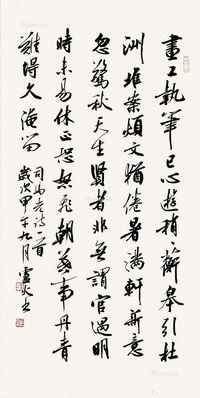 畫工執筆已心遊稍〻蘅皋引杜
洲堆案煩文猶倦暑滿軒新意
忽驚秋天生賢者非無謂官遇明
時未易休正恐怒飛朝暮事丹青
難得久淹留
司馬光詩一首
歲次甲午九月